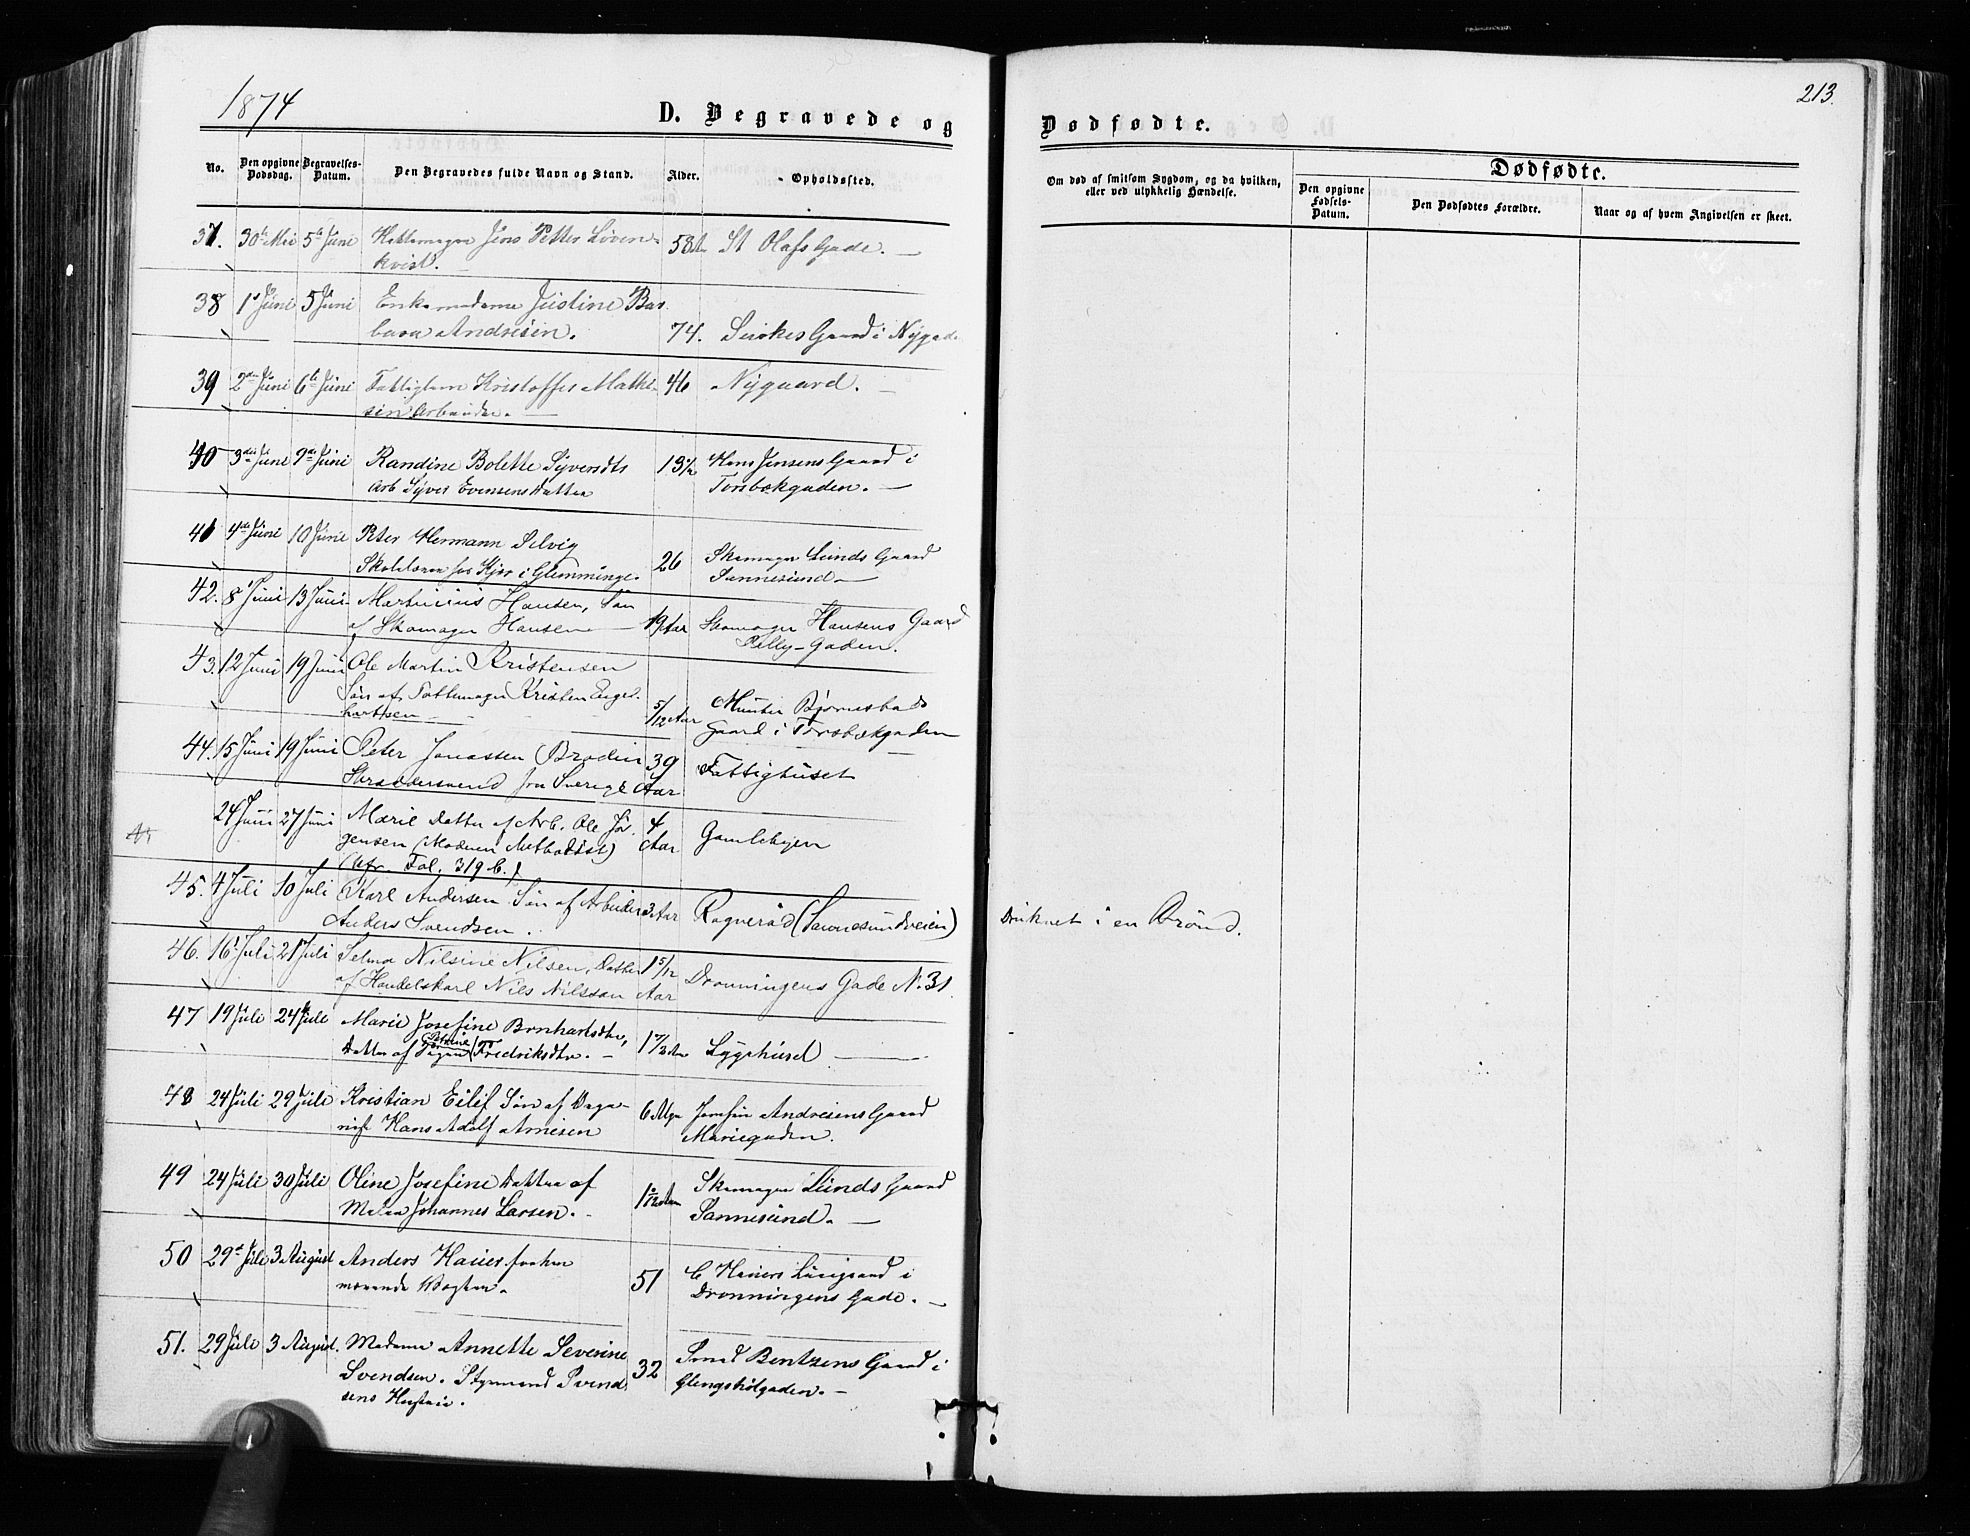 1874
213.
D. Begravede og Dødfødte.
No.
Den opgivne Dødsdag.
Begravelses-Datum.
Den Begravedes fulde Navn og Stand.
Alder.
Opholdssted.
Om død af smitsom Sygdom, og da hvilken, eller ved ulykkelig Hændelse.
Dødfødte.
Den opgivne Fødsels-Datum.
Den Dødfødtes Forældre.
Naar og af hvem Angivelsen er skeet.
37. 30te Mai 5te Juni Hattemager Jens Petter Löven- 58 St Olafs Gade.
kvist.
38 1ste Juni 5 Juni Enkemadame Justine Bar
bara Andresen. 74. Gaard i Nygade
39 2den Juni 6te Juni Fattiglem Kristoffer Mathi 46 Nygaard.
sen Arbeider.
40 3die Juni 9de Juni Randine Bolette Syversdtr 13 1/2 Hans Jensens Gaard i
Arb Syver Evensens Datter Torsbekgaden.
41 4de Juni 10 Juni Peter Hermann Selvig
Skolelærer hos Kjær i Glemminge. 26 Skomager Lunds Gaard
Sannesund
42. 8 Juni 13 Juni Martinius Hansen, Søn
af Skomager Hansen 19 Aar Skomager Hansens Gaard
Pelly-Gaden.
43. 12 Juni 19 Juni Ole Martin Kristensen
Søn af Pottemager Kristen Engel-
hartsen 5/12 Aar Munter Bjørnestads
Gaard i Torsbekgaden
44. 15 Juni 19 Juni Peter Jonassen Brodin 39 Fattighuset
Skræddersvend fra Sverige Aar
24 Juni 27 Juni Marie Datter af Arb. Ole Jör- 4 Gamlebyen
gensen (Moderen Methodist) Aar
(Cfr. Fol. 319 b.)
45. 4 Juli 10 Juli Karl Andersen Søn af Arbeider 3 Aar Ragneröd (Sannesundveien) Druknet i en Brønd.
Anders Svendsen.
46. 16 Juli 21 Juli Selma Nilsine Nilsen, Datter 1 5/12 Dronningens Gade N. 31.
af Handelskarl Nils Nilsson Aar
47 19 Juli 24 Juli Marie Josefine Brnhartsdtr,
Datter af Pigen Fredriksdtr. Sygehuset
48 24 Juli 29 Juli Kristian Eilif Søn af Vogn- 6 Mdr Josefin Andresens Gaard
Hans Adolf Arnesen Mariegaden.
49 24 Juli 30 Juli Oline Josefine Datter af
Johannes Larsen. Skomager Lunds Gaard
Sannesund.
50 29de Juli 3 August Anders Hauer forhen
værende Vægter. 51 C Hauers Gaard i
Dronningens Gade.
51. 29 Juli 3 August. Madame Annette Severine
Svendsen. Styrmand Svend 32 Smed Bentzens Gaard i
sens Hustru. Glengshölgaden.